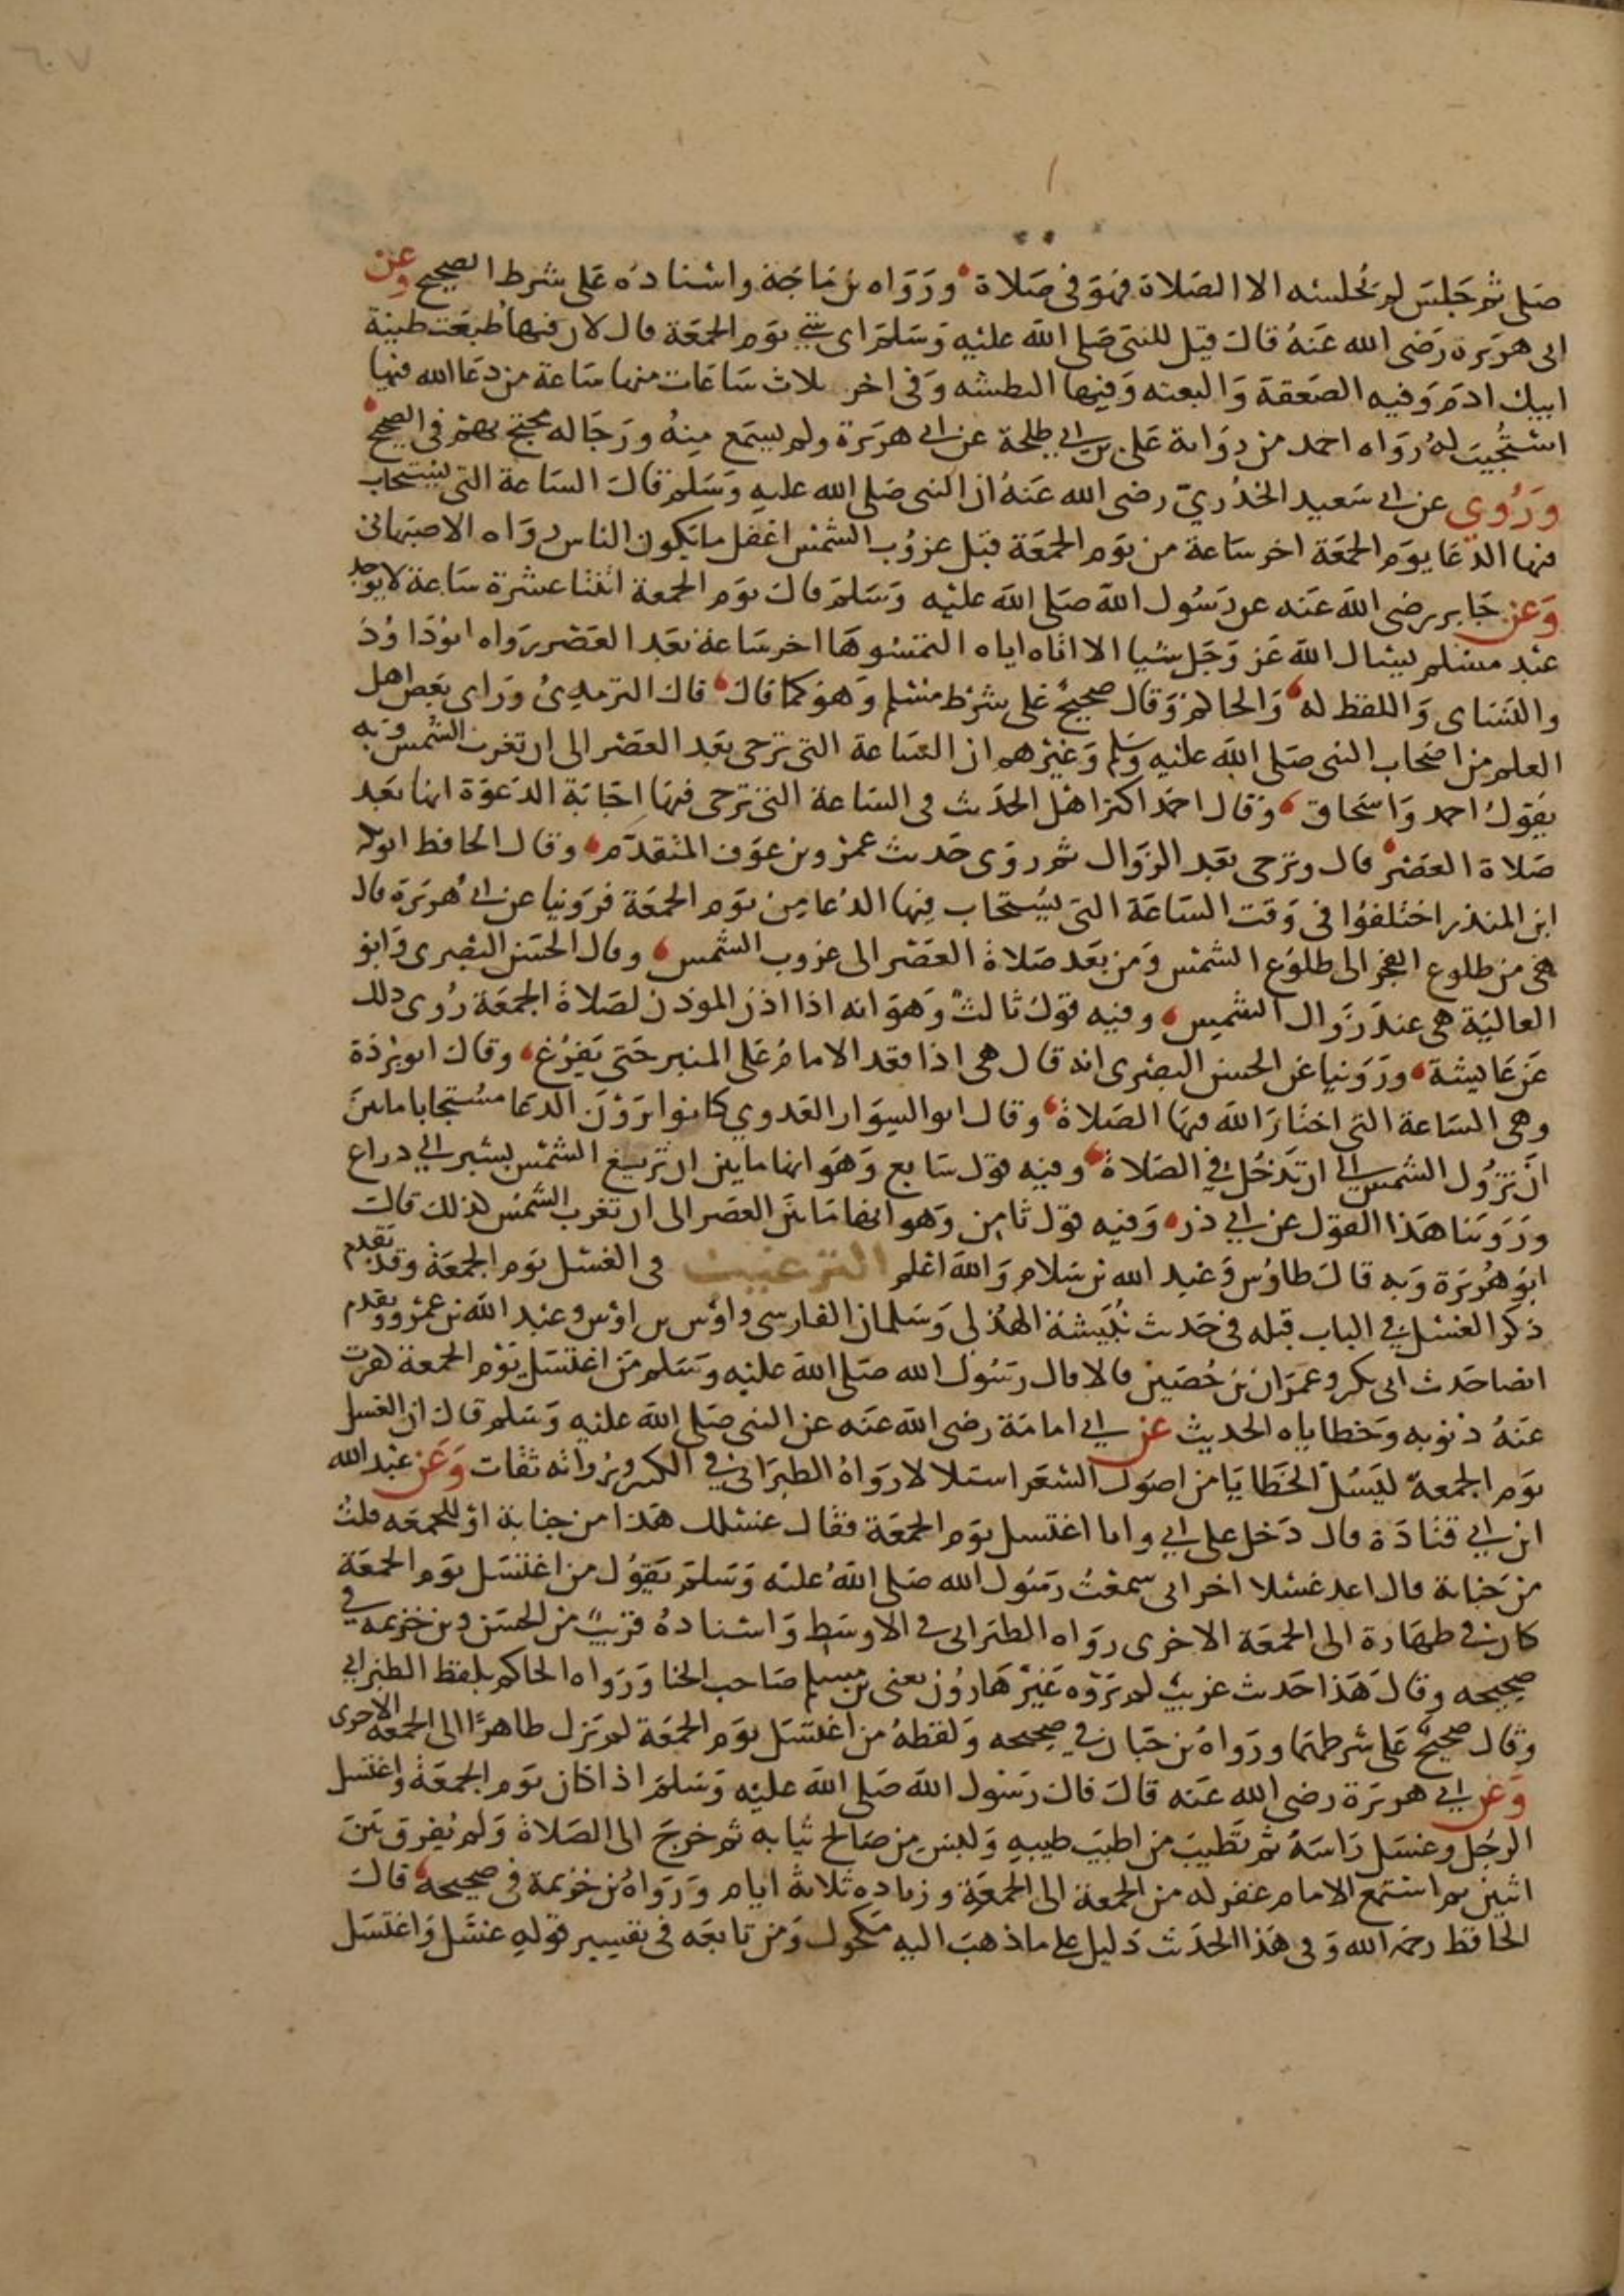 صلى ثم جلس لم يجلسه الا الصلاة فهو فى صلاة ورواه بن ماجة واسناده على شرط الصحيح وعن
ابى هريرة رضى الله عنه قال قيل للنبى صلى الله عليه وسلم اى شي يوم الجمعة قال لان فيها طبعت طينة
ابيك ادم وفيه الصعقة والبعثه وفيها البطشه وفى اخر ثلاث ساعات منها ساعة من دعا الله فيها
استجيب له رواه احمد من رواية على بن ابي طلحة عن ابي هريرة ولم يسمع منه ورجاله محتج بهم فى الصحيح
وروى عن ابي سعيد الخدري رضى الله عنه ان النبى صلى الله عليه وسلم قال الساعة التى يستجاب
فيها الدعا يوم الجمعة اخر ساعة من يوم الجمعة قبل غروب الشمس اغفل ما يكون الناس رواه الاصبهانى
وعن جابر رضى الله عنه عن رسول الله صلى الله عليه وسلم قال يوم الجمعة اثنتا عشرة ساعة لا يوجد
عبد مسلم يسال الله عز وجل شيا الا اتاه اياه التمسوها اخر ساعة بعد العصر رواه ابوداود
والنساى واللفظ له والحاكم وقال صحيح على شرط مسلم وهو كما قال قال الترمذى وراى بعض اهل
العلم من اصحاب النبى صلى الله عليه وسلم وغيرهم ان الساعة التى ترجى بعد العصر الى ان تغرب الشمس وبه
يقول احمد واسحاق وقال احمد اكثر اهل الحديث فى الساعة التى ترجى فيها اجابة الدعوة انها بعد
صلاة العصر قال وترجى بعد الزوال ثم روى حديث عمرو بن عوف المتقدم وقال الحافظ ابوبكر
ابن المنذر اختلفوا فى وقت الساعة التى يستجاب فيها الدعا من يوم الجمعة فروينا عن ابي هريرة قال
هى من طلوع الفجر الى طلوع الشمس ومن بعد صلاة العصر الى غروب الشمس وقال الحسن البصرى وابو
العالية هى عند زوال الشمس وفيه قول ثالث وهو انه اذا اذن الموذن لصلاة الجمعة روى ذلك
عن عايشة وروينا عن الحسن البصرى انه قال هى اذا قعد الامام على المنبر حتى يفرغ وقال ابوبردة
وهى الساعة التى اختار الله فيها الصلاة وقال ابو السوار العدوي كانوا يرون الدعا مستجابا ما بين
ان تزول الشمس الى ان تدخل في الصلاة وفيه قول سابع وهو انها ما بين ان تزيغ الشمس بشبر الي ذراع
وروينا هذا القول عن ابي ذر وفيه قول ثامن وهو انها ما بين العصر الى ان تغرب الشمس كذلك قال
ابو هريرة وبه قال طاوس وعبد الله بن سلام والله اعلم الترغيب فى الغسل يوم الجمعة وقد تقدم
ذكر الغسل في الباب قبله فى حديث نبيشة الهذلى وسلمان الفارسى واوس بن اوس وعبد الله بن عمرو وتقدم
ايضا حديث ابى بكر وعمران بن حصين قالا قال رسول الله صلى الله عليه وسلم من اغتسل يوم الجمعة كفرت
عنه ذنوبه وخطاياه الحديث عن ابي امامة رضى الله عنه عن النبى صلى الله عليه وسلم قال ان الغسل
يوم الجمعة ليسل الخطايا من اصول الشعر استلالا رواه الطبرانى في الكبير ورواته ثقات وعن عبد الله
ابن ابي قتادة قال دخل على ابي وانا اغتسل يوم الجمعة فقال غسلك هذا من جنابة او للجمعه قلت
من جنابة قال اعد غسلا اخر انى سمعت رسول الله صلى الله عليه وسلم يقول من اغتسل يوم الجمعة
كان في طهارة الى الجمعة الاخرى رواه الطبرانى فى الاوسط واسناده قريب من الحسن وبن خزيمه في
صحيحه وقال هذا حديث غريب لم يروه غير هارون يعنى بن مسلم صاحب الحنا ورواه الحاكم بلفظ الطبراني
وقال صحيح على شرطهما ورواه بن حبان في صحيحه ولفظه من اغتسل يوم الجمعة لم يزل طاهرا الى الجمعة الاخرى
وعن ابي هريرة رضى الله عنه قال قال رسول الله صلى الله عليه وسلم اذا كان يوم الجمعة واغتسل
الرجل وغسل راسه ثم تطيب من اطيب طيبه ولبس من صالح ثيابه ثم خرج الى الصلاة ولم يفرق بين
اثنين ثم استمع الامام غفر له من الجمعة الى الجمعة وزياده ثلاثة ايام ورواه بن خزيمة فى صحيحه قال
الحافظ رحمه الله وفى هذا الحديث دليل على ما ذهب اليه مكحول ومن تابعه فى تفسير قوله غسل واغتسل